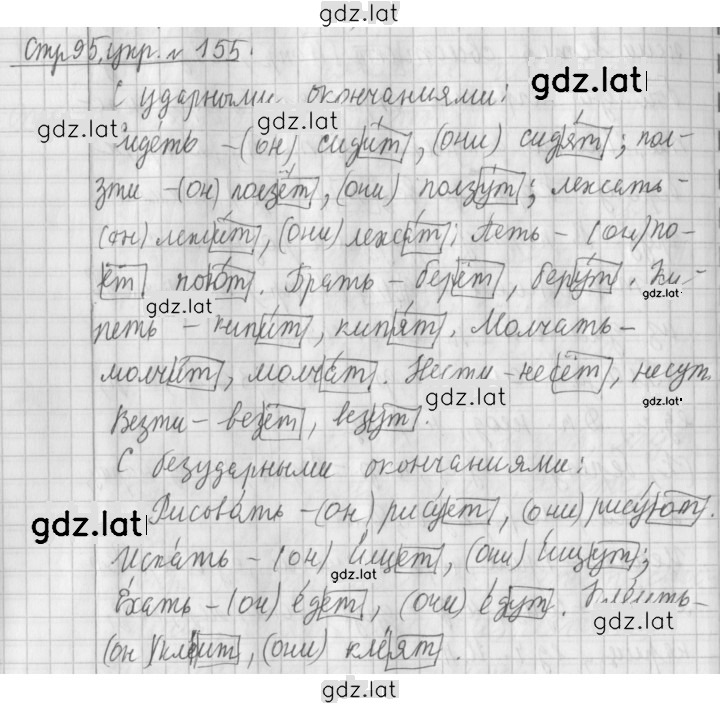 gdz.lat
Стр 95, упр. № 155.
С ударными окончаниями:
gdz.lat
gdz.lat
gdz.lat
Сидеть – (он) сидит, (они) сидят; пол-
зти – (он) ползёт, (они) ползут; лежать –
(он) лежит, (они) лежат; Петь – (он) по-
ёт поют. Брать – берёт, берут. Ки-
gdz.lat
gdz.lat
петь – кипит, кипят. Молчать –
молчит, молчат. Нести – несёт, несут.
gdz.lat
gdz.lat
Везти – везёт, везут.
С безударными окончаниями:
gdz.lat
Рисовать – (он) рисует, (они) рисуют.
Искать – (он) ищет, (они) ищут;
gdz.lat
Ехать – (он) едет, (они) едут. Клеить –
gdz.lat
(он) клеит, (они) клеят.
gdz.lat